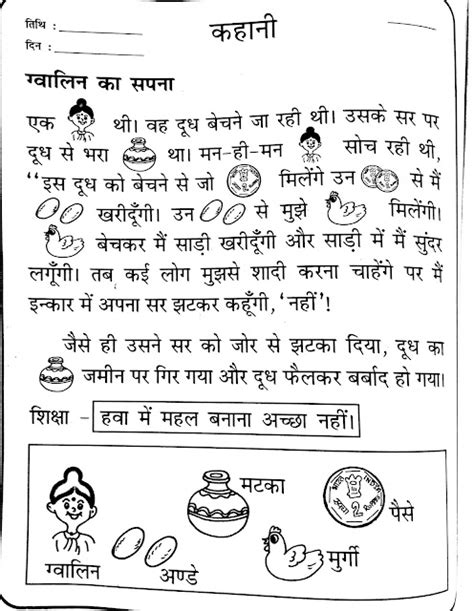 तिथि : 
दिन : 
कहानी
ग्वालिन का सपना
एक थी। वह दूध बेचने जा रही थी। उसके सर पर
दूध से भरा था। मन-ही-मन सोच रही थी,
“इस दूध को बेचने से जो मिलेंगे उन से मैं
खरीदूँगी। उन से मुझे मिलेंगी।
बेचकर मैं साड़ी खरीदूँगी और साड़ी में मैं सुंदर
लगूँगी। तब कई लोग मुझसे शादी करना चाहेंगे पर मैं
इन्कार में अपना सर झटकर कहूँगी, ‘नहीं’!
जैसे ही उसने सर को जोर से झटका दिया, दूध का
जमीन पर गिर गया और दूध फैलकर बर्बाद हो गया।
शिक्षा - हवा में महल बनाना अच्छा नहीं।
मटका
2
पैसे
ग्वालिन
अण्डे
मुर्गी